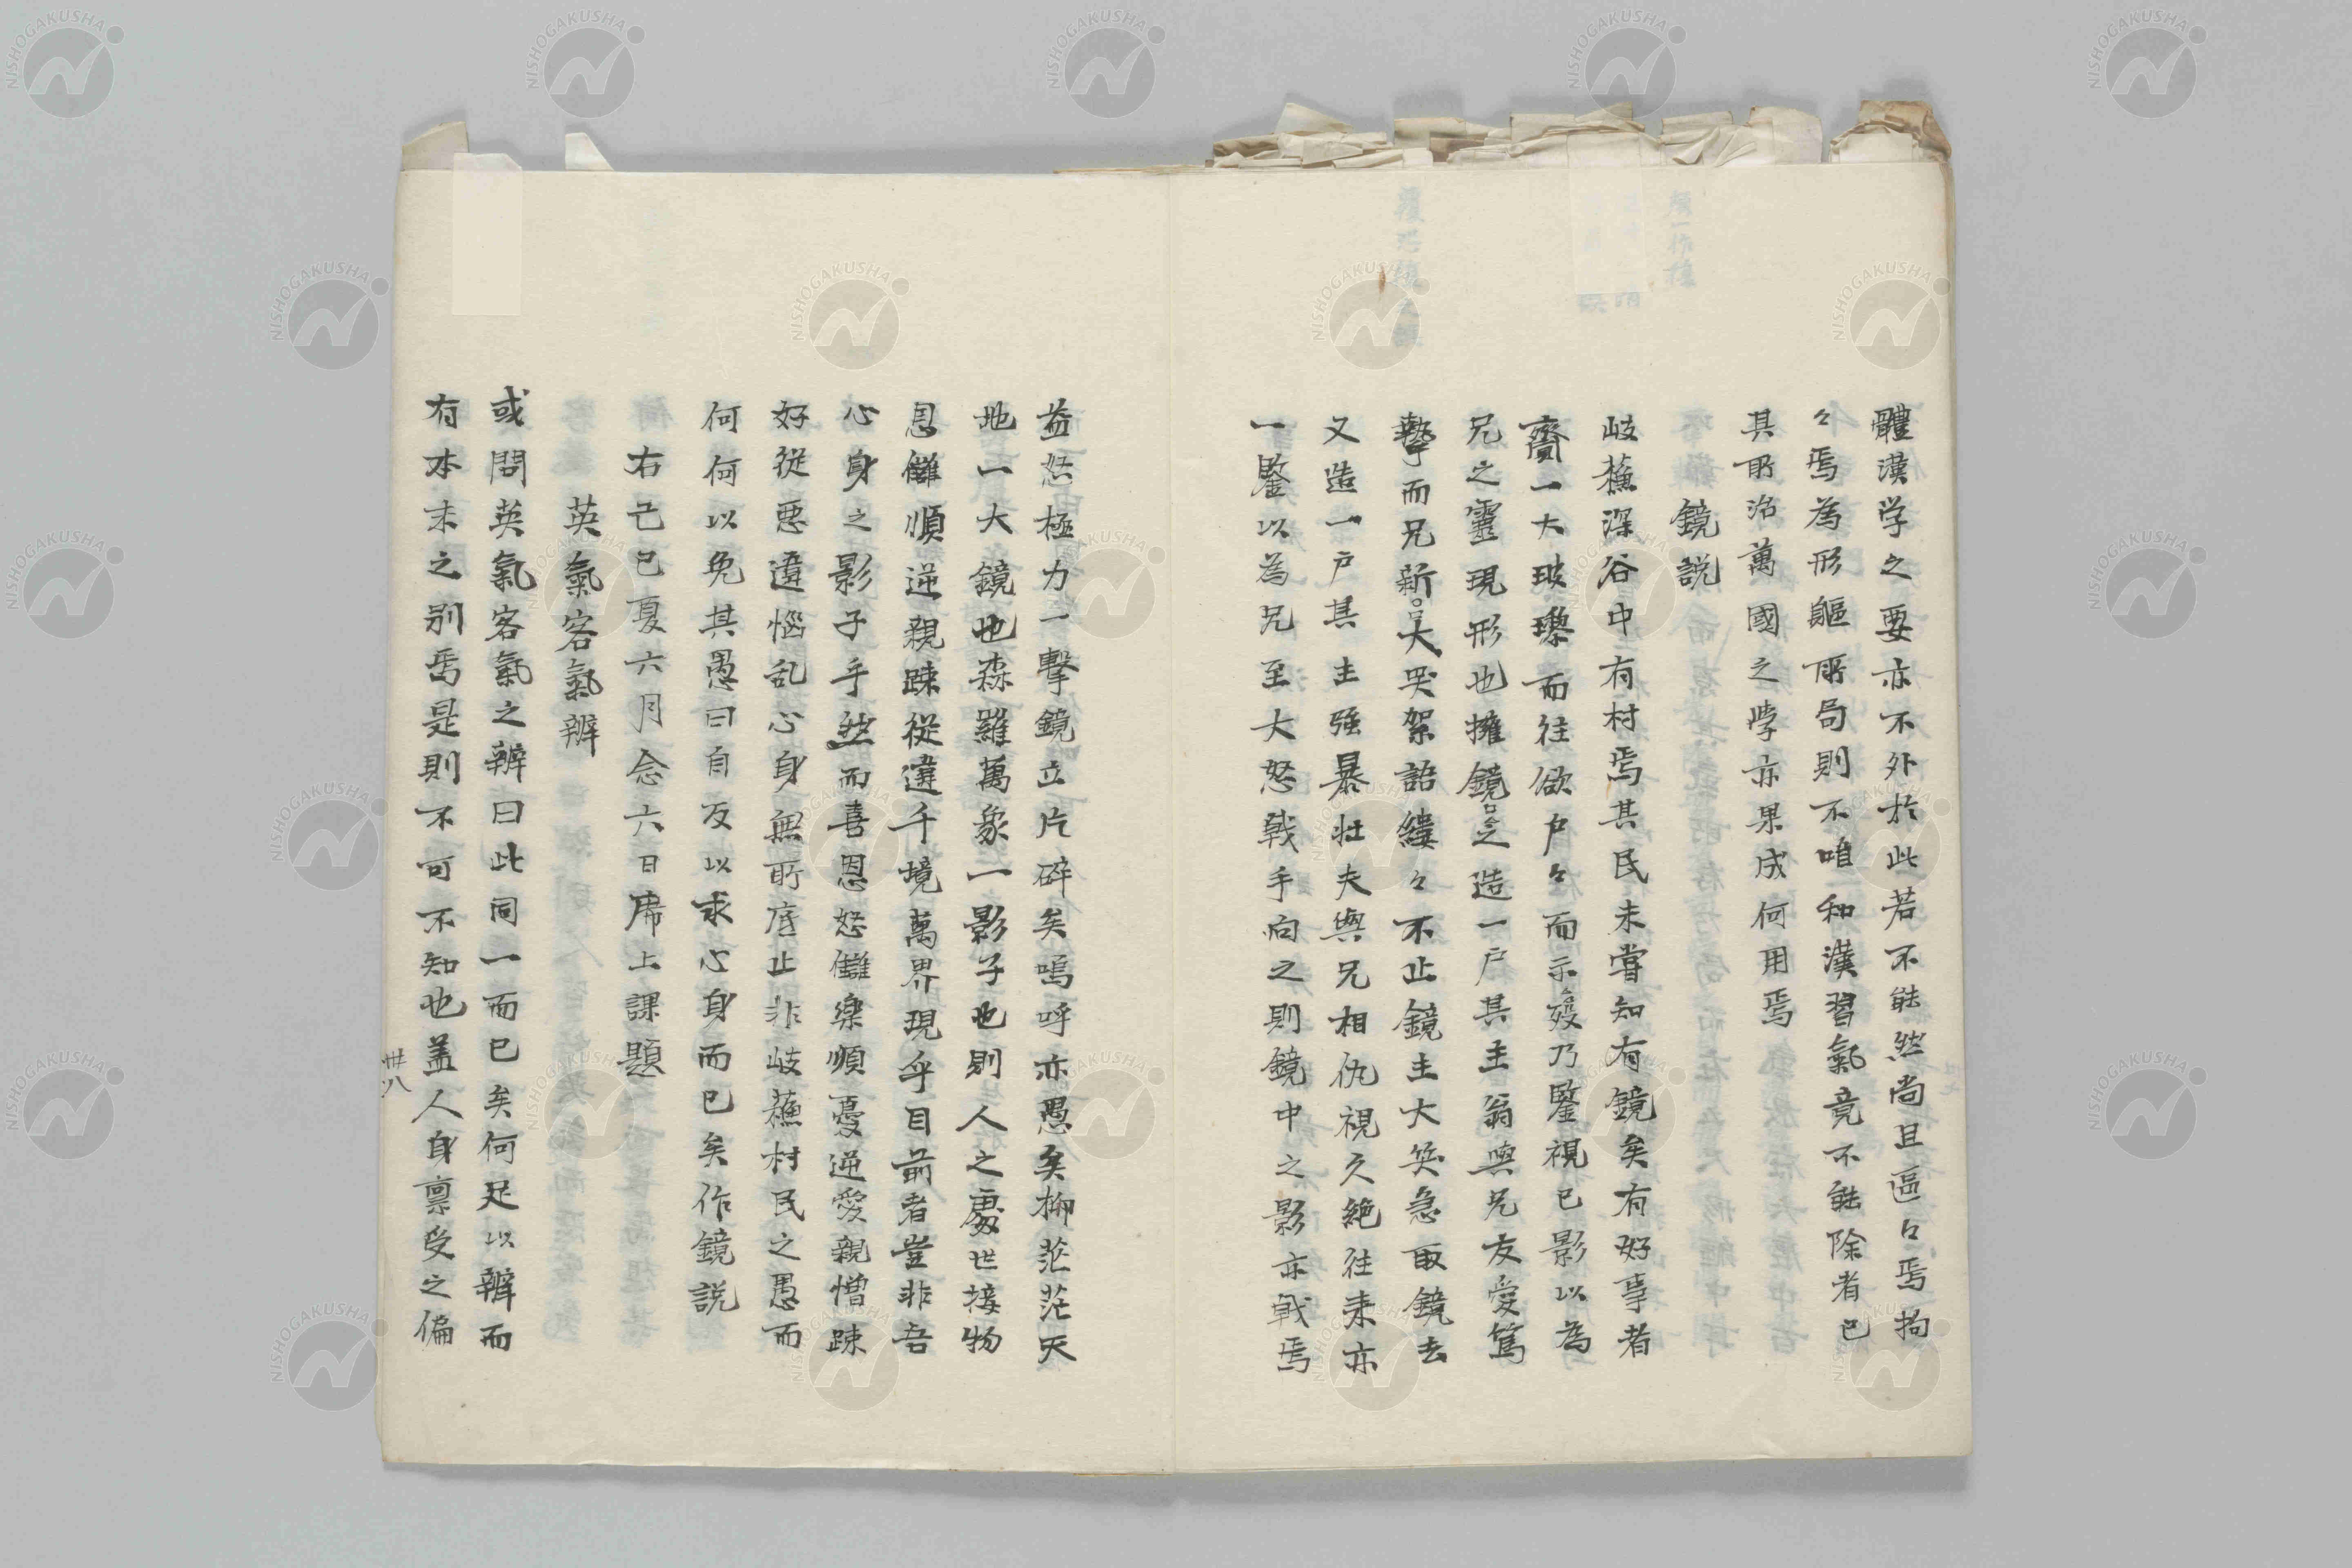 體漢学之要亦不外於此若不能然尚且區々焉拘
々焉為形軀所局則不唯和漢習氣竟不能除者已
其所治萬國之學亦果成何用焉
鏡説
岐蘓深谷中有村焉其民未嘗知有鏡矣有好事者
齎一大玻瓈而往欲户々而示乃鑒視已影以為
兄之靈現形也擁鏡之造一户其主翁與兄友愛篤
摯而兄新大哭絮語縷々不止鏡主大笑急取鏡去
又造一户其主强暴壮夫與兄相仇視久絶往来亦
一鑒以為兄至大怒戟手向之則鏡中之影亦戟焉
益怒極力一擊鏡立片碎矣嗚呼亦愚矣抑茫茫天
地一大鏡也森羅萬象一影子也則人之處世接物
恩讎順逆親踈從違千境萬界現乎目前者豈非吾
心身之影子乎然而喜恩怒讎樂順憂逆愛親憎踈
好從惡違惱乱心身無所底止非岐蘓村民之愚而
何何以免其愚曰自反以求心身而已矣作鏡説
右己巳夏六月念六日席上課題
英氣客氣辨
或問英氣客氣之辨曰此同一而已矣何足以辨而
有本末之别焉是則不可不知也盖人身禀受之偏
卅八
NISHOGAKUSHA